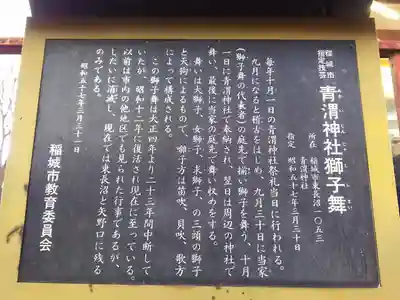 稲城市
指定技芸
青渭神社獅子舞
所在 稲城市東長沼一〇五三
青渭神社
指定 昭和五十七年三月三十日
毎年十月一日の青渭神社祭礼当日に行われる。
九月になると稽古をはじめ、九月三十日に当家
(獅子舞の代表者)の庭先で揃い獅子を舞う。十月
一日に青渭神社で奉納され、翌日は周辺の神社で
舞い、最後に当家の庭先で舞い収めをする。
舞いは大獅子、女獅子、求獅子、の三頭の獅子
と天狗によるもので、囃子方は笛吹、貝吹、歌方
によって構成される。
この獅子舞は大正四年より二十三年間中断して
いたが、昭和十二年に復活され現在に至っている。
以前は市内の他地区でも見られた行事であるが、
しだいに消滅し、現在では東長沼と矢野口に残る
のみである。
昭和五十七年三月三十一日
稲城市教育委員会